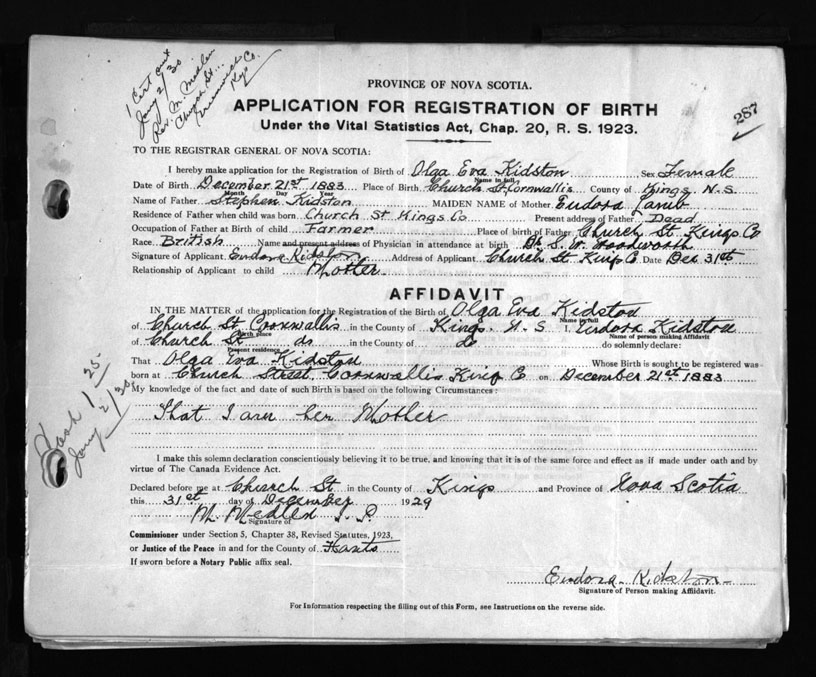 1 Cert out
Jany 2/30
Rev. M. Medlen
Church St.
Kgs Co.
PROVINCE OF NOVA SCOTIA.
287
APPLICATION FOR REGISTRATION OF BIRTH
Under the Vital Statistics Act, Chap. 20, R. S. 1923.
TO THE REGISTRAR GENERAL OF NOVA SCOTIA:
I hereby make application for the Registration of Birth of Olga Eva Kidston Sex Female
Name in full
Date of Birth December 21st 1883 Place of Birth Church St Cornwallis County of Kings N.S.
Month Day Year
Name of Father Stephen Kidston MAIDEN NAME of Mother Eudora Lamb
Residence of Father when child was born Church St Kings Co Present address of Father Dead
Occupation of Father at Birth of child Farmer Place of birth of Father Church St Kings Co
Race British Name and present address of Physician in attendance at birth Dr S. W. Woodworth
Signature of Applicant Eudora Kidston Address of Applicant Church St Kings Co Date Dec 31st
Relationship of Applicant to child Mother
AFFIDAVIT
IN THE MATTER of the application for the Registration of the Birth of Olga Eva Kidston
Name in full
of Church St Cornwallis in the County of Kings. N. S I, Eudora Kidston
Birth place Name of person making Affidavit
of Church St do in the County of do do solemnly declare:
Present residence
That Olga Eva Kidston Whose Birth is sought to be registered was
born at Church Street Cornwallis Kings Co on December 21st 1883
My knowledge of the fact and date of such Birth is based on the following Circumstances:
That I am her Mother
Cash 1.25
Jany 2/30
I make this solemn declaration conscientiously believing it to be true, and knowing that it is of the same force and effect as if made under oath and by
virtue of The Canada Evidence Act.
Declared before me at Church St in the County of Kings and Province of Nova Scotia
this 31st day of December 1929
M. Medlen J. P.
Signature of
Commissioner under Section 5, Chapter 38, Revised Statutes, 1923,
or Justice of the Peace in and for the County of Hants
If sworn before a Notary Public affix seal.
Eudora Kidston
Signature of Person making Affidavit.
For Information respecting the filling out of this Form, see Instructions on the reverse side.